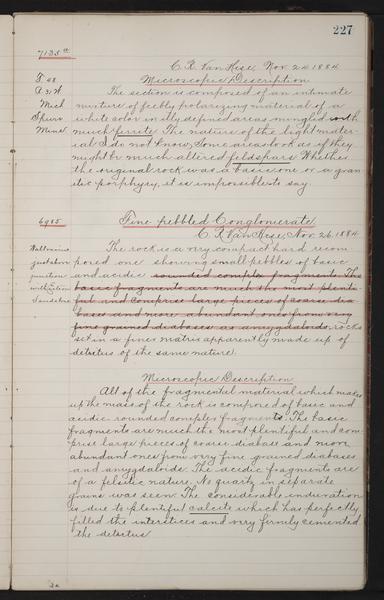 227
7135 a
C. R. Van Hise, Nov. 24. 1884.
Microscopic Description
The section is composed of an intimate
mixture of feebly polarizing material of a
white color in illy defined areas mingled with
much ferrite. The nature of the light mater-
ial I do not know; Some areas look as if they
might be much altered feldspars. Whether
the original rock was a basic one or a gran
itic porphyry, it is impossible to say.
6985
Fine pebbled Conglomerate.
C. R. Van Hise, Nov. 26. 1884
The rock is a very compact hard recom
posed one showing small pebbles of basic
and acidic rounded complex fragments. The
basic fragments are much the most plenti-
ful and comprise large pieces of coarse dia
bases and more abundant ones from very
fine grained diabases as amygdaloids. rocks
set in a finer matrix apparently made up of
detritus of the same nature.
Microscopic Description
All of the fragmental material which makes
up the mass of the rock is composed of basic and
acidic rounded complex fragments. The basic
fragments are much the most plentiful and com
prise large pieces of coarse diabase and more
abundant ones from very fine grained diabases
and amygdaloids. The acidic fragments are
of a felsitic nature. No quartz in separate
grains was seen. The considerable induration
is due to plentiful calcite which has perfectly
filled the interstices and very firmly cemented
the detritus